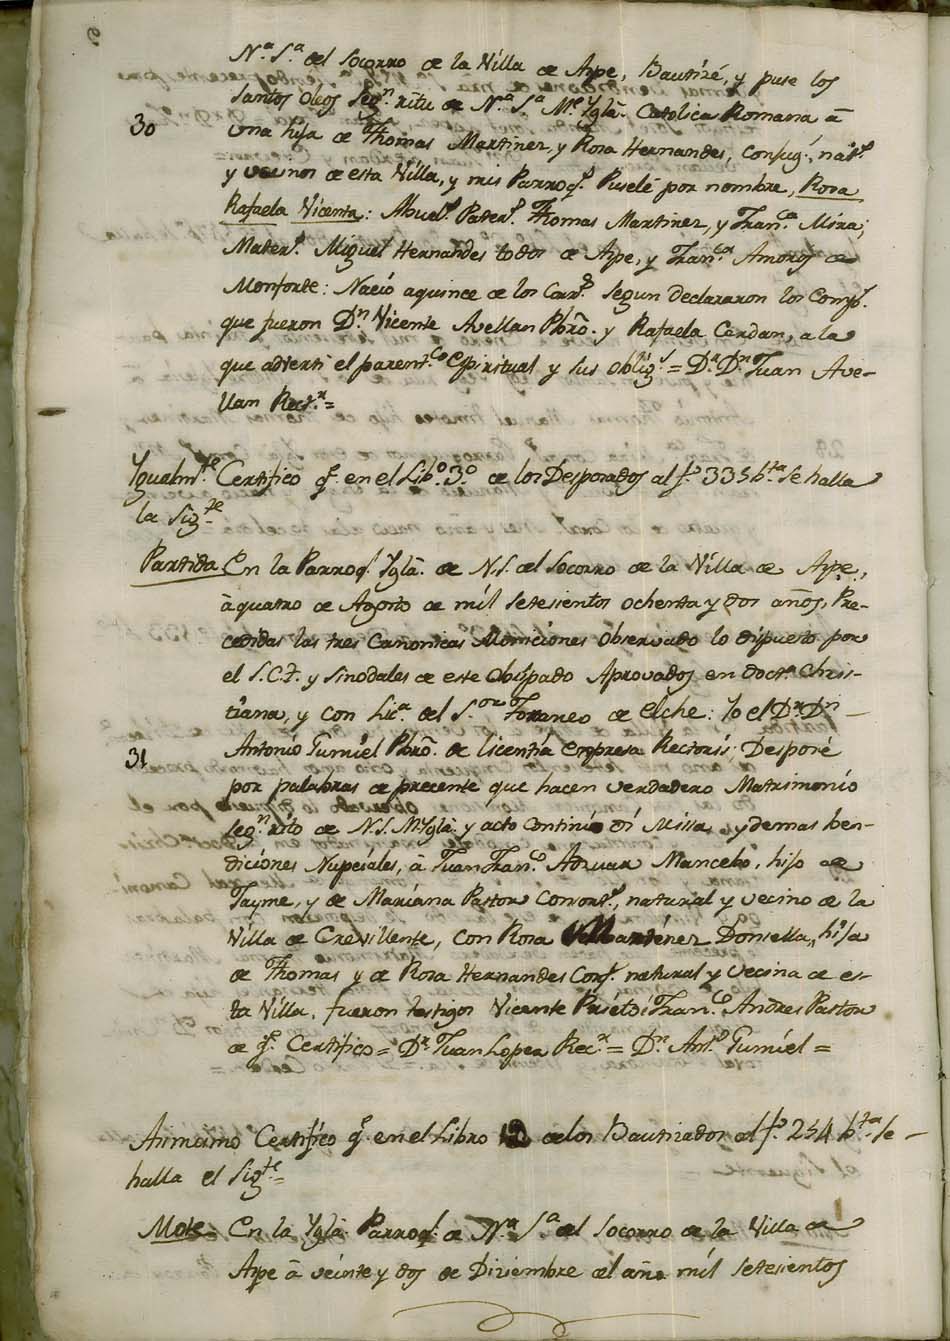 Nª Sª del Socorro de la Villa de Aspe, Bautizé, y puse los
Santos Oleos Segⁿ ritu de Nª Sª Mᵉ Yglª Catolica Romana à
30 una hija de Thomas Martinez, y Rosa Hernandes, Conjug.ˢ natˢ
y vecinos de esta Villa, y mis Parroqˢ Pusele por nombre, Rosa
Rafaela Vicenta: Abuelˢ Paterˢ Thomas Martinez, y Franᶜᵃ Mira;
Materˢ Miguel Hernandes todos de Aspe, y Franᶜᵃ Amoros de
Monforte: Nació a quince de los Corrˢ segun declararon los Compˢ
que fueron Dⁿ Vicente Avellan Pbrõ. y Rafaela Cerdan, a la
que adverti el parentᶜᵒ espiritual y sus obligˢ = Dʳ Dⁿ Juan Ave-
llan Rectʳ =
Ygualmᵗᵉ Certifico q̃ en el Libº 3º de los Desposados al fº 335 bᵗᵃ se halla
la Sigᵗᵉ
Partida En la Parroqˡ Yglª de N.S. del Socorro de la Villa de Aspe,
à quatro de Agosto de mil setesientos ochenta y dos años, Pre-
cedidas las tres Canonicas Moniciones observado lo dispuesto por
el S.C.T. y Sinodales de este Obispado Aprovados en doctª Chris-
tiana, y con Licª del Sᵒʳ Vº Foraneo de Elche: Yo el Dʳ Dⁿ
31 Antonio Gumiel Pbrõ. de licentia expresa Rectoris; Desposé
por palabras de precente que hacen verdadero Matrimonio
segⁿ rito de N.S. Mᵉ Yglª y acto continuo di Missa, y demas ben-
diciones Nupciales, à Juan Franᶜᵒ Adsuar Mancebo, hijo de
Jayme, y de Mariana Pastor Consortˢ, natural y vecino de la
Villa de Crevillente, con Rosa Martinez Donsella, hija
de Thomas y de Rosa Hernandes Conjˢ natural y vecina de es-
ta Villa, fueron testigos Vicente Prieto i Franᶜᵒ Andres Pastor
de q̃ Certifico = Dʳ Juan Lopez Recʳ = Dʳ Antº Gumiel =
Asimismo Certifico q̃ en el Libro 12 de los Bautizados al fº 254 bᵗᵃ se
halla el Sigᵗᵉ =
Mote En la Yglª Parroqˡ de Nª Sª del Socorro de la Villa de
Aspe à veinte y dos de Diziembre del año mil setesientos